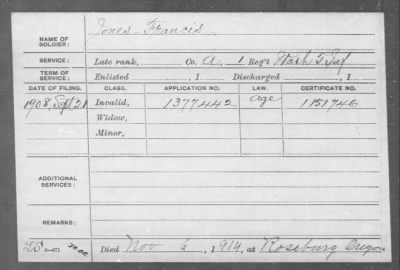 NAME OF SOLDIER: Jones, Francis
SERVICE: Late rank, Co. A, 1 Reg't Wash T Inf
TERM OF SERVICE: Enlisted , 1 Discharged , 1
DATE OF FILING. CLASS. APPLICATION NO. LAW. CERTIFICATE NO.
1908, Sept 21 Invalid, 1377442 age 1151746
Widow,
Minor,
ADDITIONAL SERVICES:
REMARKS:
Died Nov 6, 1914, at Roseburg Oregon